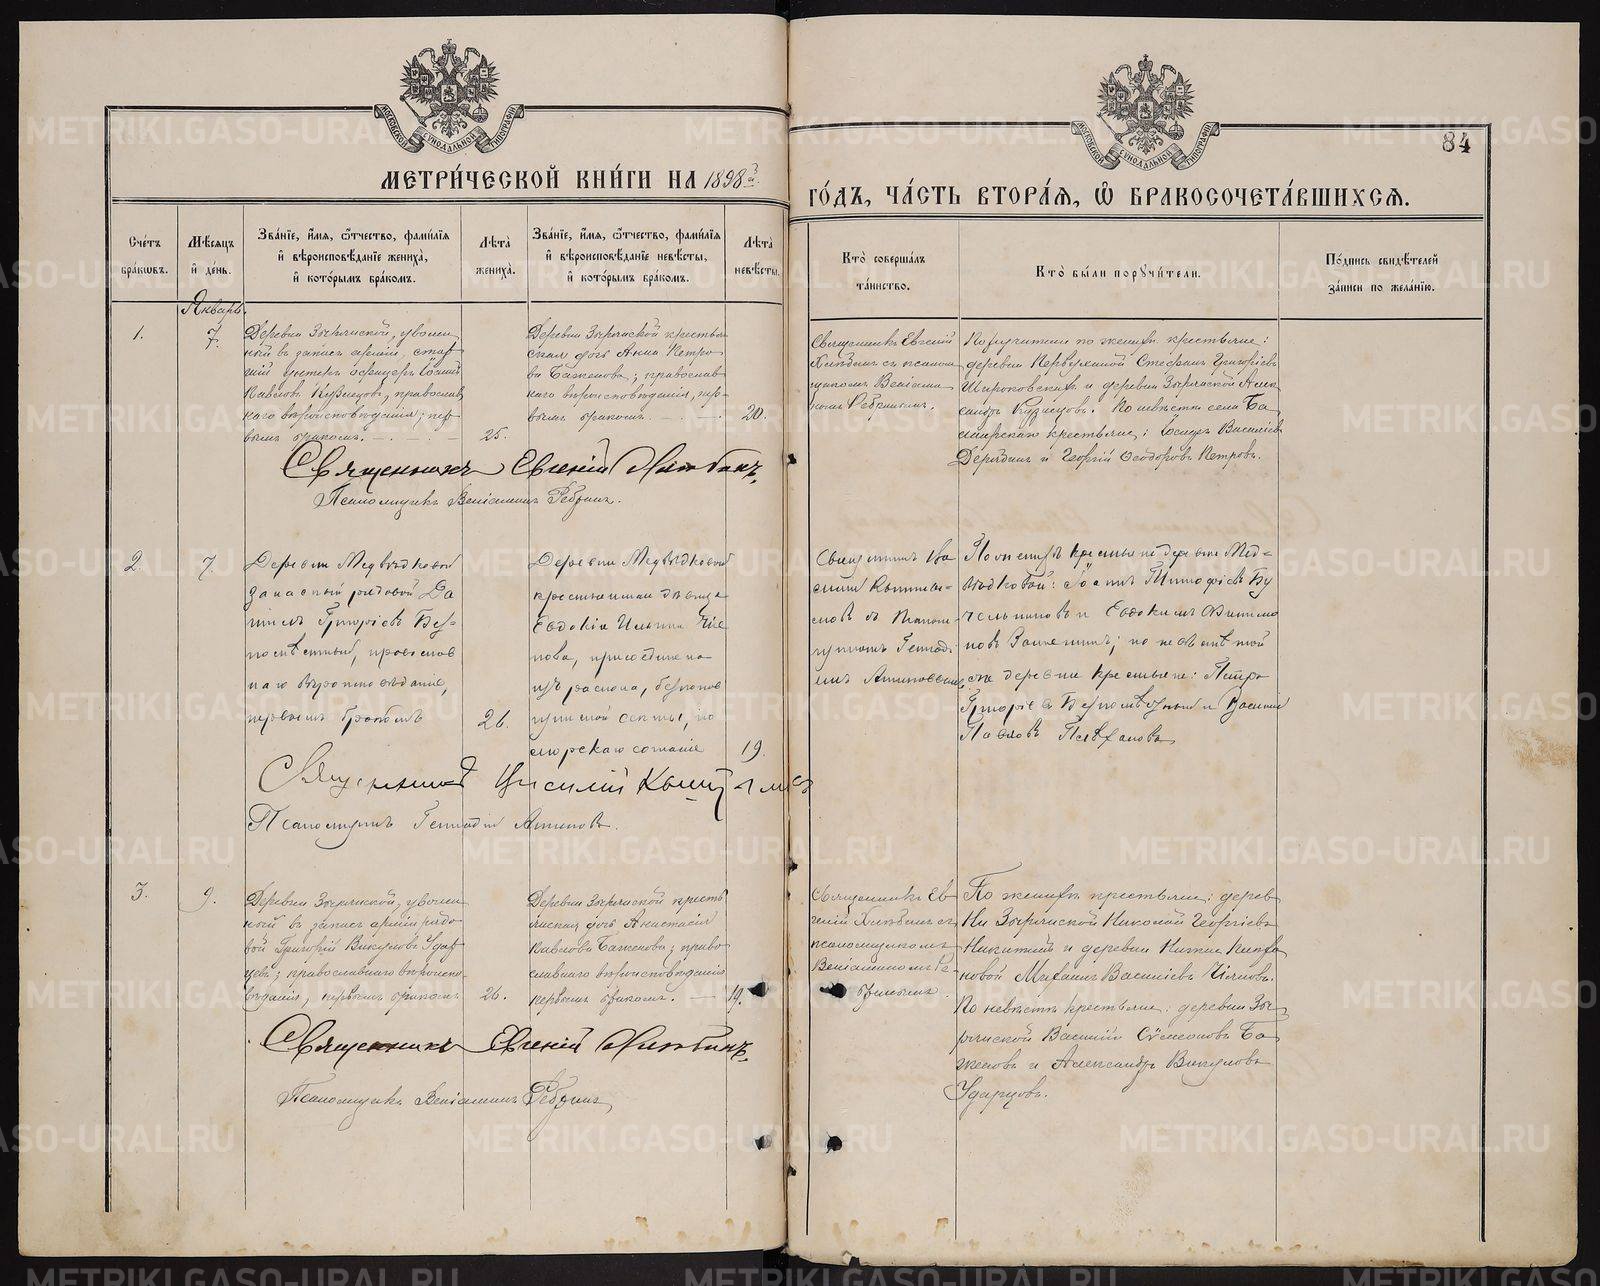 МОСКОВСКОЙ СѴНОДАЛЬНОЙ ТИПОГРАФІИ
МОСКОВСКОЙ СѴНОДАЛЬНОЙ ТИПОГРАФІИ
84
МЕТРИ́ЧЕСКОЙ КНИ́ГИ НА 1898й
ГО́ДЪ, ЧА́СТЬ ВТОРА́Я, Ѽ БРАКОСОЧЕТА́ВШИХСЯ.
Сче́тъ бра́кѡвъ.
Мѣ́сяцъ и҆ де́нь.
Зва́нїе, и҆́мя, ѻ҆́тчество, фами́лїя и҆ вѣроисповѣ́данїе жениха̀, и҆ кото́рымъ бра́комъ.
Лѣ́та жениха̀.
Зва́нїе, и҆́мя, ѻ҆́тчество, фами́лїя и҆ вѣроисповѣ́данїе невѣ́сты, и҆ кото́рымъ бра́комъ.
Лѣ́та невѣ́сты.
Кто̀ соверша́лъ та́инство.
Кто̀ бы́ли порꙋчи́тели.
По́дпись свидѣ́телей за́писи по жела́нїю.
Январь.
1.
7.
Деревни Зырянской, уволен
ный въ запасъ арміи, стар
шій унтеръ офицеръ Іоаннъ
Павловъ Кузнецовъ, православ
наго вѣроисповѣданія; пер
вымъ бракомъ.
25.
Деревни Зырянской крестьян
ская дочь Анна Петро
ва Баженова; православ
наго вѣроисповѣданія, пер
вымъ бракомъ
20.
Священникъ Евгеній
Хлѣбинъ съ псалом
щикомъ Веніами
номъ Ребринымъ.
Поручители по женихѣ крестьяне:
деревни Первухиной Стефанъ Григорьевъ
Широковскихъ и деревни Зырянской Алек
сандръ Кузнецовъ. По невѣстѣ села Ба
крестьяне: Іосифъ Василіевъ
и Георгій Ѳеодоровъ Петровъ.
Священникъ Евгеній Хлѣбинъ.
Псаломщикъ Веніаминъ Ребринъ.
2.
7.
Деревни Медвѣдковой
запасный рядовой Да
ніилъ Григоріевъ Без-
помѣстный, православ
наго вѣроисповѣданія,
первымъ бракомъ
26.
Деревни Медвѣдковой
крестьянская дѣвица
Евдокія Ильина
нова, присоединена
изъ раскола, безпопов
щинской секты, по
морскаго согласія
19.
Священникъ Ва
силій
съ псалом
щикомъ Геннаді
емъ Аминовымъ
По женихѣ крестьяне деревни Мед-
вѣдковой: Іоаннъ Тимофѣевъ Бу
и Евдокимъ Филимо
новъ; по невѣстѣ той
же деревни крестьяне: Петръ
Григоріевъ Безпомѣстный и Василій
Павловъ
Священникъ Василій
Псаломщикъ Геннадій Аминовъ.
3.
9.
Деревни Зырянской, уволен
ный въ запасъ арміи рядо
вой Григорій Викуловъ Удар
цевъ; православнаго вѣроиспо
вѣданія, первымъ бракомъ
26.
Деревни Зырянской кресть
янская дочь Анастасія
Павлова Баженова; право
славнаго вѣроисповѣданія
первымъ бракомъ.
19.
Священникъ Ев
геній Хлѣбинъ съ
псаломщикомъ
Веніаминомъ Ре
бринымъ.
По женихѣ крестьяне: дерев
ни Зырянской Николай Георгіевъ
Никитинъ и деревни
новой Михаилъ Василіевъ
По невѣстѣ крестьяне: деревни Зы
рянской Василій Сѵмеоновъ Ба
женовъ и Александръ Викуловъ
Ударцовъ.
Священникъ Евгеній Хлѣбинъ.
Псаломщикъ Веніаминъ Ребринъ
METRIKI.GASO-URAL.RU